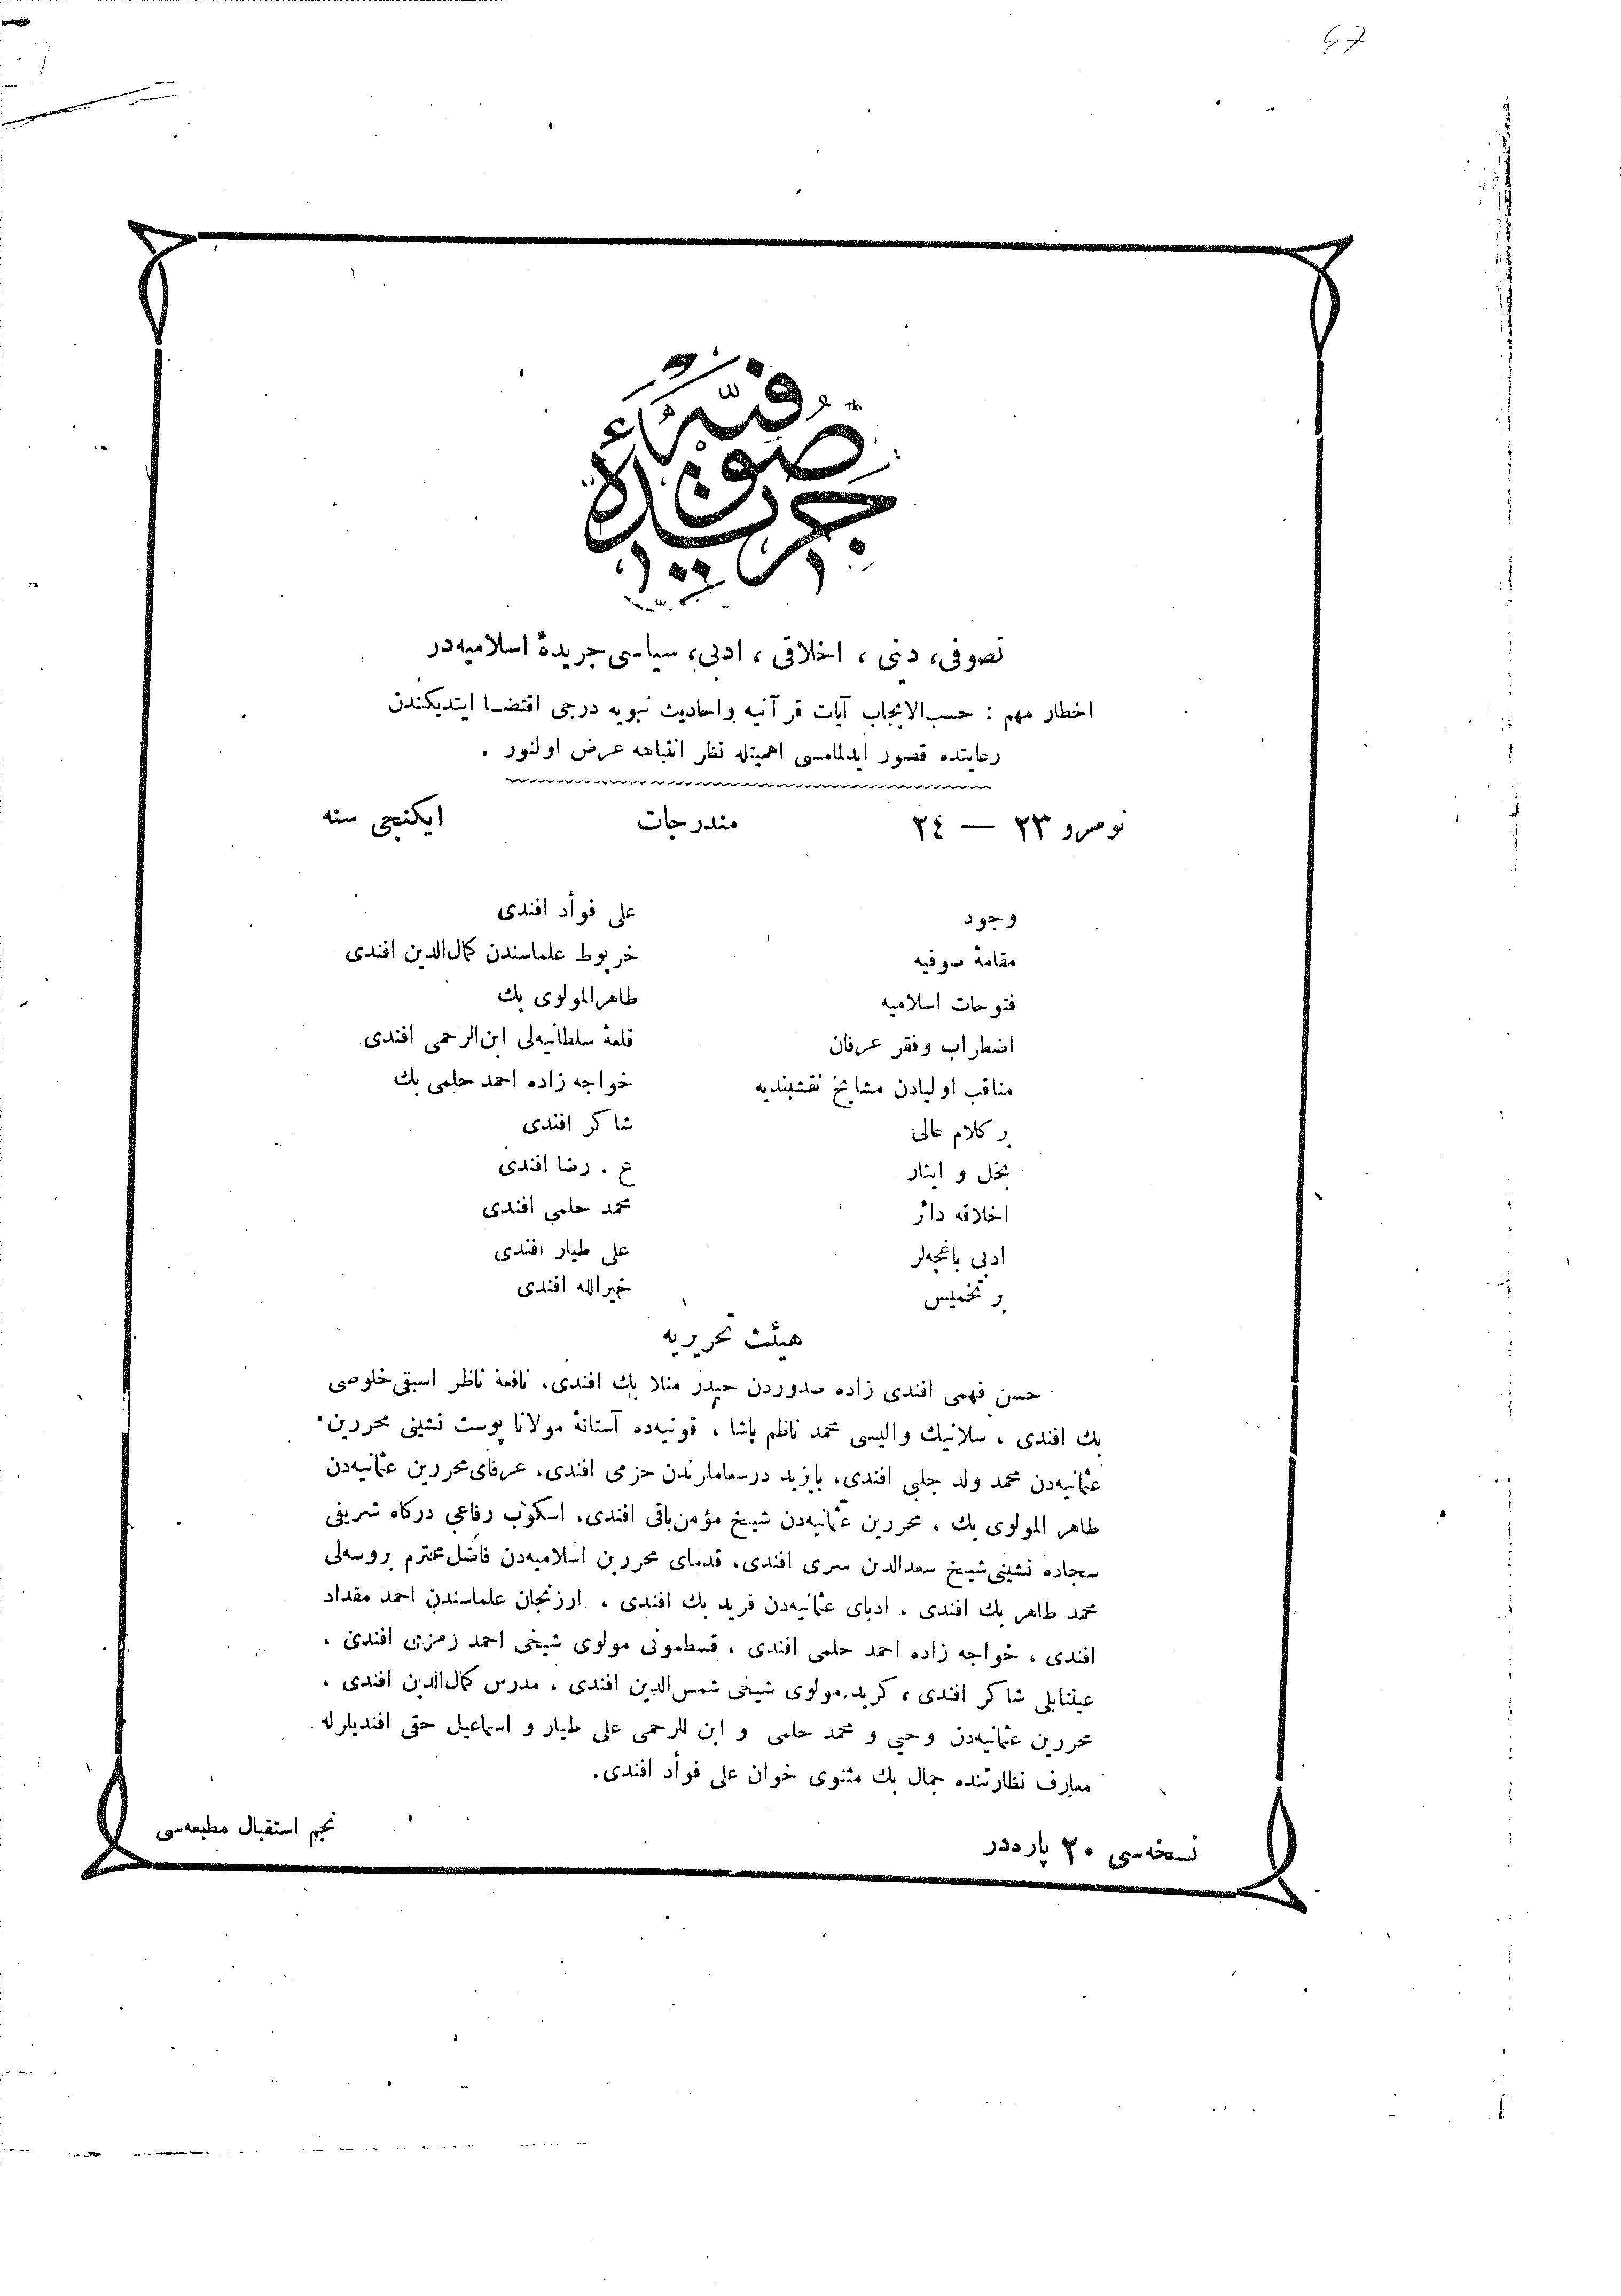 47
جريدۀ صوفيه
تصوفی، دينی ، اخلاقی ، ادبی، سياسی جريدۀ اسلاميه‌در
اخطار مهم : حسب‌الايجاب آيات قرآنيه واحاديث نبويه درجی اقتضا ايتديكندن
رعايتده قصور ايدلمامسی اهميتله نظر انتباهه عرض اولنور .
نومرو ٢٣ — ٢٤ مندرجات ايكنجی سنه
وجود علی فوأد افندی
مقامۀ صوفيه خرپوط علماسندن كمال‌الدين افندی
فتوحات اسلاميه طاهرالمولوی بك
اضطراب وفقر عرفان قلعۀ سلطانيه‌لی ابن‌الرحمی افندی
مناقب اوليادن مشايخ نقشبنديه خواجه زاده احمد حلمی بك
بر كلام عالی شاكر افندی
بخل و ايثار ع . رضا افندی
اخلاقه دائر محمد حلمی افندی
ادبی باغچه‌لر علی طيار افندی
بر تخميس خيرالله افندی
هيئت تحريريه
حسن فهمی افندی زاده صدوردن حيدر منلا بك افندی، نافعه ناظر اسبقی خلوصی
بك افندی ، سلانيك واليسی محمد ناظم پاشا ، قونيه‌ده آستانۀ مولانا پوست نشينی محررين
عثمانيه‌دن محمد ولد چلبی افندی، بايزيد درسعاملرندن حزمی افندی، عرفای محررين عثمانيه‌دن
طاهر المولوی بك ، محررين عثمانيه‌دن شيخ مؤمن‌باقی افندی، اسكوب رفاعی دركاه شريفی
سجاده نشينی شيخ سعدالدين سری افندی، قدمای محررين اسلاميه‌دن فاضل محترم بروسه‌لی
محمد طاهر بك افندی ، ادبای عثمانيه‌دن فريد بك افندی ، ارزنجان علماسندن احمد مقداد
افندی ، خواجه زاده احمد حلمی افندی ، قسطمونی مولوی شيخی احمد رمزی افندی ،
عينتابلی شاكر افندی ، كريد مولوی شيخی شمس‌الدين افندی ، مدرس كمال‌الدين افندی ،
محررين عثمانيه‌دن وحيی و محمد حلمی و ابن الرحمی علی طيار و اسماعيل حقی افنديلرله
معارف نظارتنده جمال بك مثنوی خوان علی فوأد افندی.
نسخه‌سی ٢٠ پاره‌در نجم استقبال مطبعه‌سی